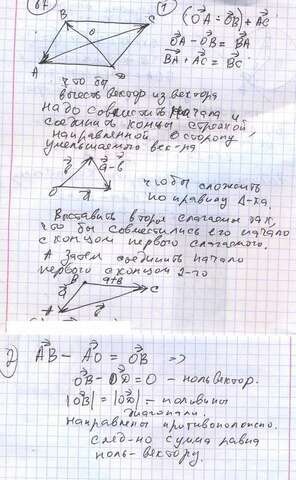 67
1
B C
O
A D
(O⃗A − O⃗B) + A⃗C
O⃗A − O⃗B = B⃗A
B⃗A + A⃗C = B⃗C
что бы
вычесть вектор из вектора
надо совместить начала и
соединить концы стрелкой,
направленной в сторону
уменьшаемого век-ра
b⃗ a⃗-b⃗
O a⃗
чтобы сложить
по правилу Δ-ка,
Выставить второе слагаемое так,
что бы совместились его начало
с концом первого слагаемого.
А затем соединить начало
первого с концом 2-го
B a+b C
a⃗
A
2) A⃗B − A⃗O = O⃗B =>
O⃗B − O⃗D = O – ноль вектор.
|O⃗B| = |O⃗D| – половины
диагонали.
Направлены противоположно.
след-но сумма равна
ноль-вектору.